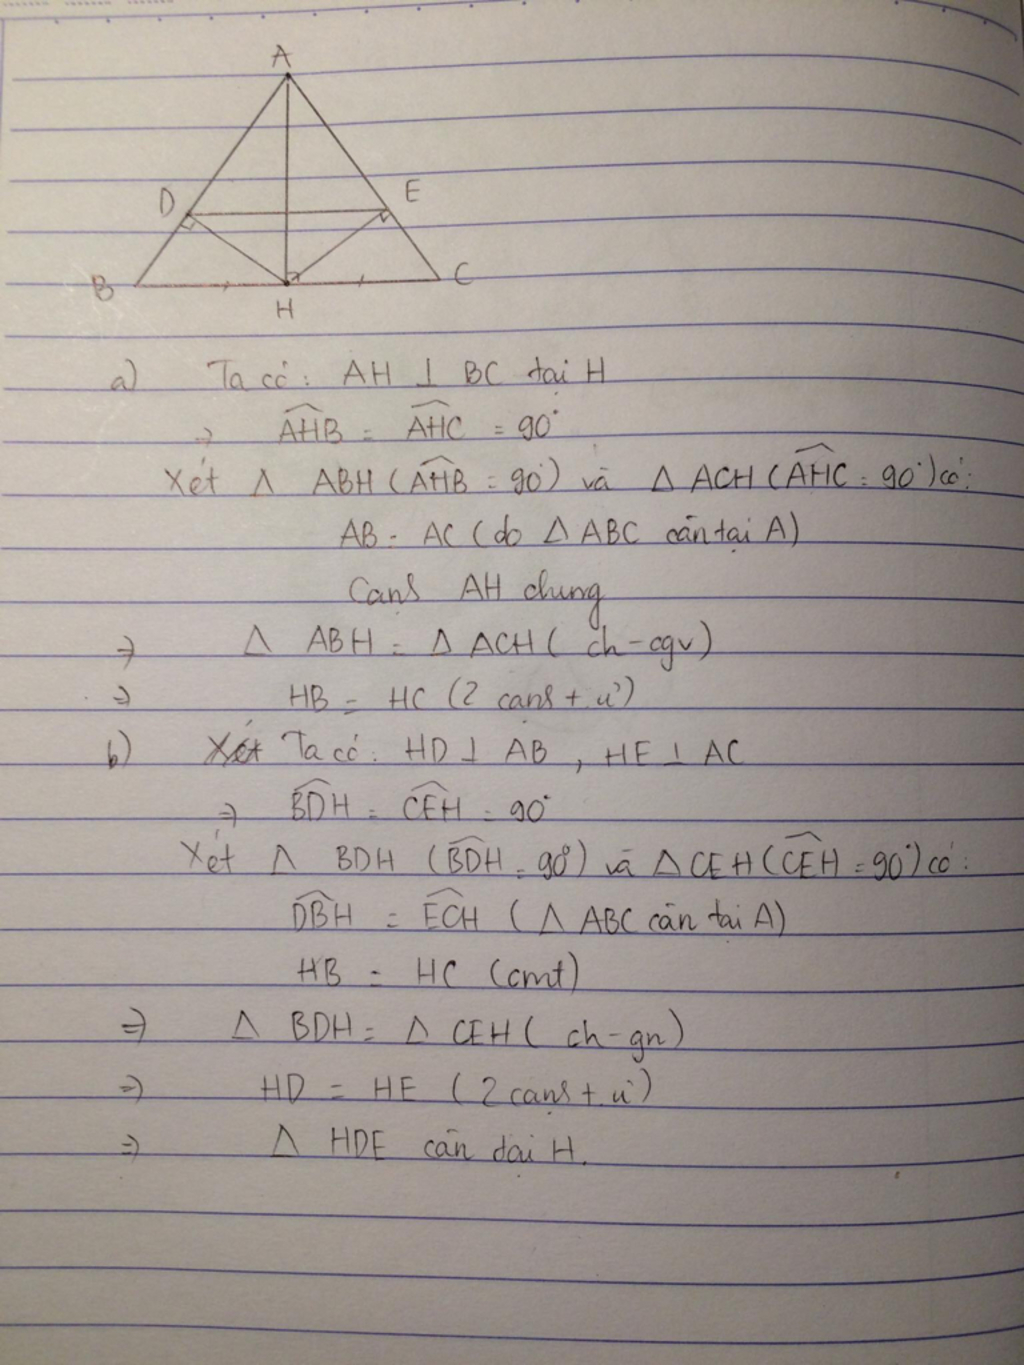 A
D
E
B
C
H
a) Ta có: AH ⊥ BC tại H
=> \widehat{AHB} = \widehat{AHC} = 90°
Xét Δ ABH (\widehat{AHB} = 90°) và Δ ACH (\widehat{AHC} = 90°) có:
AB = AC (do Δ ABC cân tại A)
Cạnh AH chung
=> Δ ABH = Δ ACH ( ch-cgv)
=> HB = HC (2 cạnh t. ư')
b) Xét Ta có: HD ⊥ AB , HE ⊥ AC
=> \widehat{BDH} = \widehat{CEH} = 90°
Xét Δ BDH (\widehat{BDH} = 90°) và Δ CEH (\widehat{CEH} = 90°) có:
\widehat{DBH} = \widehat{ECH} ( Δ ABC cân tại A)
HB = HC (cmt)
=> Δ BDH = Δ CEH ( ch-gn)
=> HD = HE ( 2 cạnh t. ư')
=> Δ HDE cân tại H.